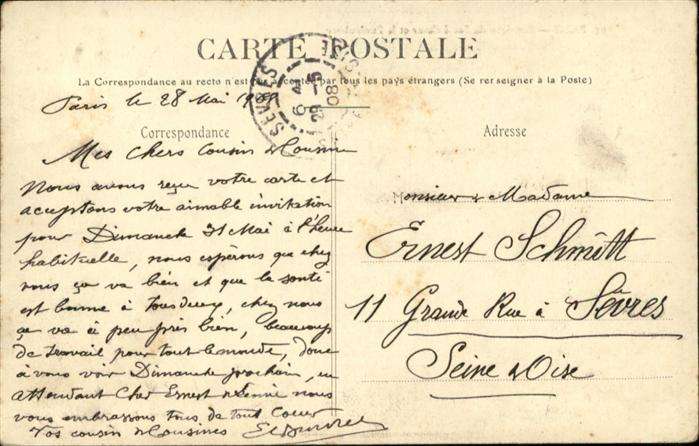 CARTE POSTALE
La Correspondance au recto n'est pas acceptée par tous les pays étrangers (Se renseigner à la Poste)
SÈVRES
29-5
08
Paris le 28 Mai 1908
Correspondance
Mes chers Cousin & Cousine
Nous avons reçu votre carte et
acceptons votre aimable invitation
pour Dimanche 31 Mai à l'heure
habituelle, nous espérons que chez
vous ça va bien et que la santé
est bonne à tous deux, chez nous
ça va à peu près bien, beaucoup
de travail pour tout le monde, donc
à vous voir Dimanche prochain, en
attendant Cher Ernest & nous
vous embrassons tous de tout Coeur
Vos cousin & Cousines
Adresse
Monsieur & Madame
Ernest Schmitt
11 Grande Rue à Sèvres
Seine & Oise